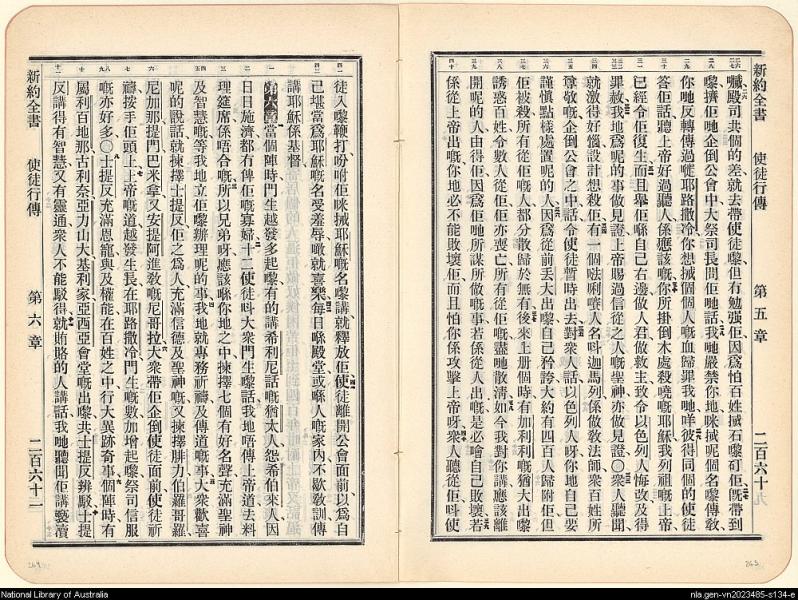 新約全書 使徒行傳 第五章 二百六十
嘅殿司共個的差就去帶使徒嚟但有勉强佢因爲怕百姓搣石嚟矴佢旣帶到
嚟擠佢哋企倒公會中大祭司長問佢哋話我哋嚴禁你地咪搣呢個名嚟傳敎
你哋反轉傳過嗮耶路撒冷你想搣個個人嘅血歸罪我哋咩彼得同個的使徒
答佢話聽上帝好過聽人係應該嘅你所掛倒木處殺嘵嘅耶穌我列祖嘅上帝
已經令佢復生而且舉佢喺自己右邊做人君做救主致令以色列人悔改及得
罪赦我地爲呢的事做見證上帝賜過信從之人嘅聖神亦做見證〇衆人聽聞
就激得好惱設計想殺佢有一個𠵇唎㘔人名呌迦馬列係做敎法師衆百姓所
尊敬嘅企倒公會之中話令使徒暫時出去對衆人話以色列人呀你地自己要
謹愼點樣處置呢的人因爲從前丟大出嚟自己矜誇大約有四百人歸附佢但
佢被殺所有從佢嘅人都分散歸於無有後來上册個時有加利利嘅猶大出嚟
誘惑百姓令數人從佢佢亦喪亡所有從佢嘅盡哋散淸如今我對你講應該離
開呢的人由得佢因爲佢哋所謀所做嘅事若係從人出嘅是必噲自己敗壞若
係從上帝出嘅你地必不能敗壞佢而且怕你係攻擊上帝呀衆人聽從佢呌使
徒入嚟鞭打吩咐佢咪搣耶穌嘅名嚟講就釋放佢使徒離開公會面前以爲自
己堪當爲耶穌嘅名受羞辱噉就喜樂每日喺殿堂或喺人嘅家內不歇敎訓傳
講耶穌係基督
第六章當個陣時門生越發多起嚟有的講希利尼話嘅猶太人怨希伯來人因
日日施濟都冇俾佢嘅寡婦十二使徒呌大衆門生嚟話我地唔傳上帝道去料
理筵席係唔合嘅所以兄弟呀應該喺你地之中揀擇七個有好名聲充滿聖神
及智慧嘅等我地立佢嚟辦理呢的事我地就專務祈禱及傳道嘅事大衆歡喜
呢的說話就揀擇士提反佢之爲人充滿信德及聖神嘅又揀擇腓力伯羅哥羅
尼加那提門巴米拿又安提阿進敎嘅尼哥拉大衆帶佢企倒使徒面前使徒祈
禱按手佢頭上上帝嘅道越發生長在耶路撒冷門生嘅數加增起嚟祭司信服
嘅亦好多〇士提反充滿恩寵與及權能在百姓之中行大異跡奇事個陣時有
屬利百地那古利奈亞力山大基利家亞西亞會堂嘅出嚟共士提反辨駁士提
反講得有智慧又有靈通衆人不能駁得就賄賂的人講話我哋聽聞佢講褻瀆
新約全書 使徒行傳 第六章 二百六十一
National Library of Australia
nla.gen-vn2023485-s134-e